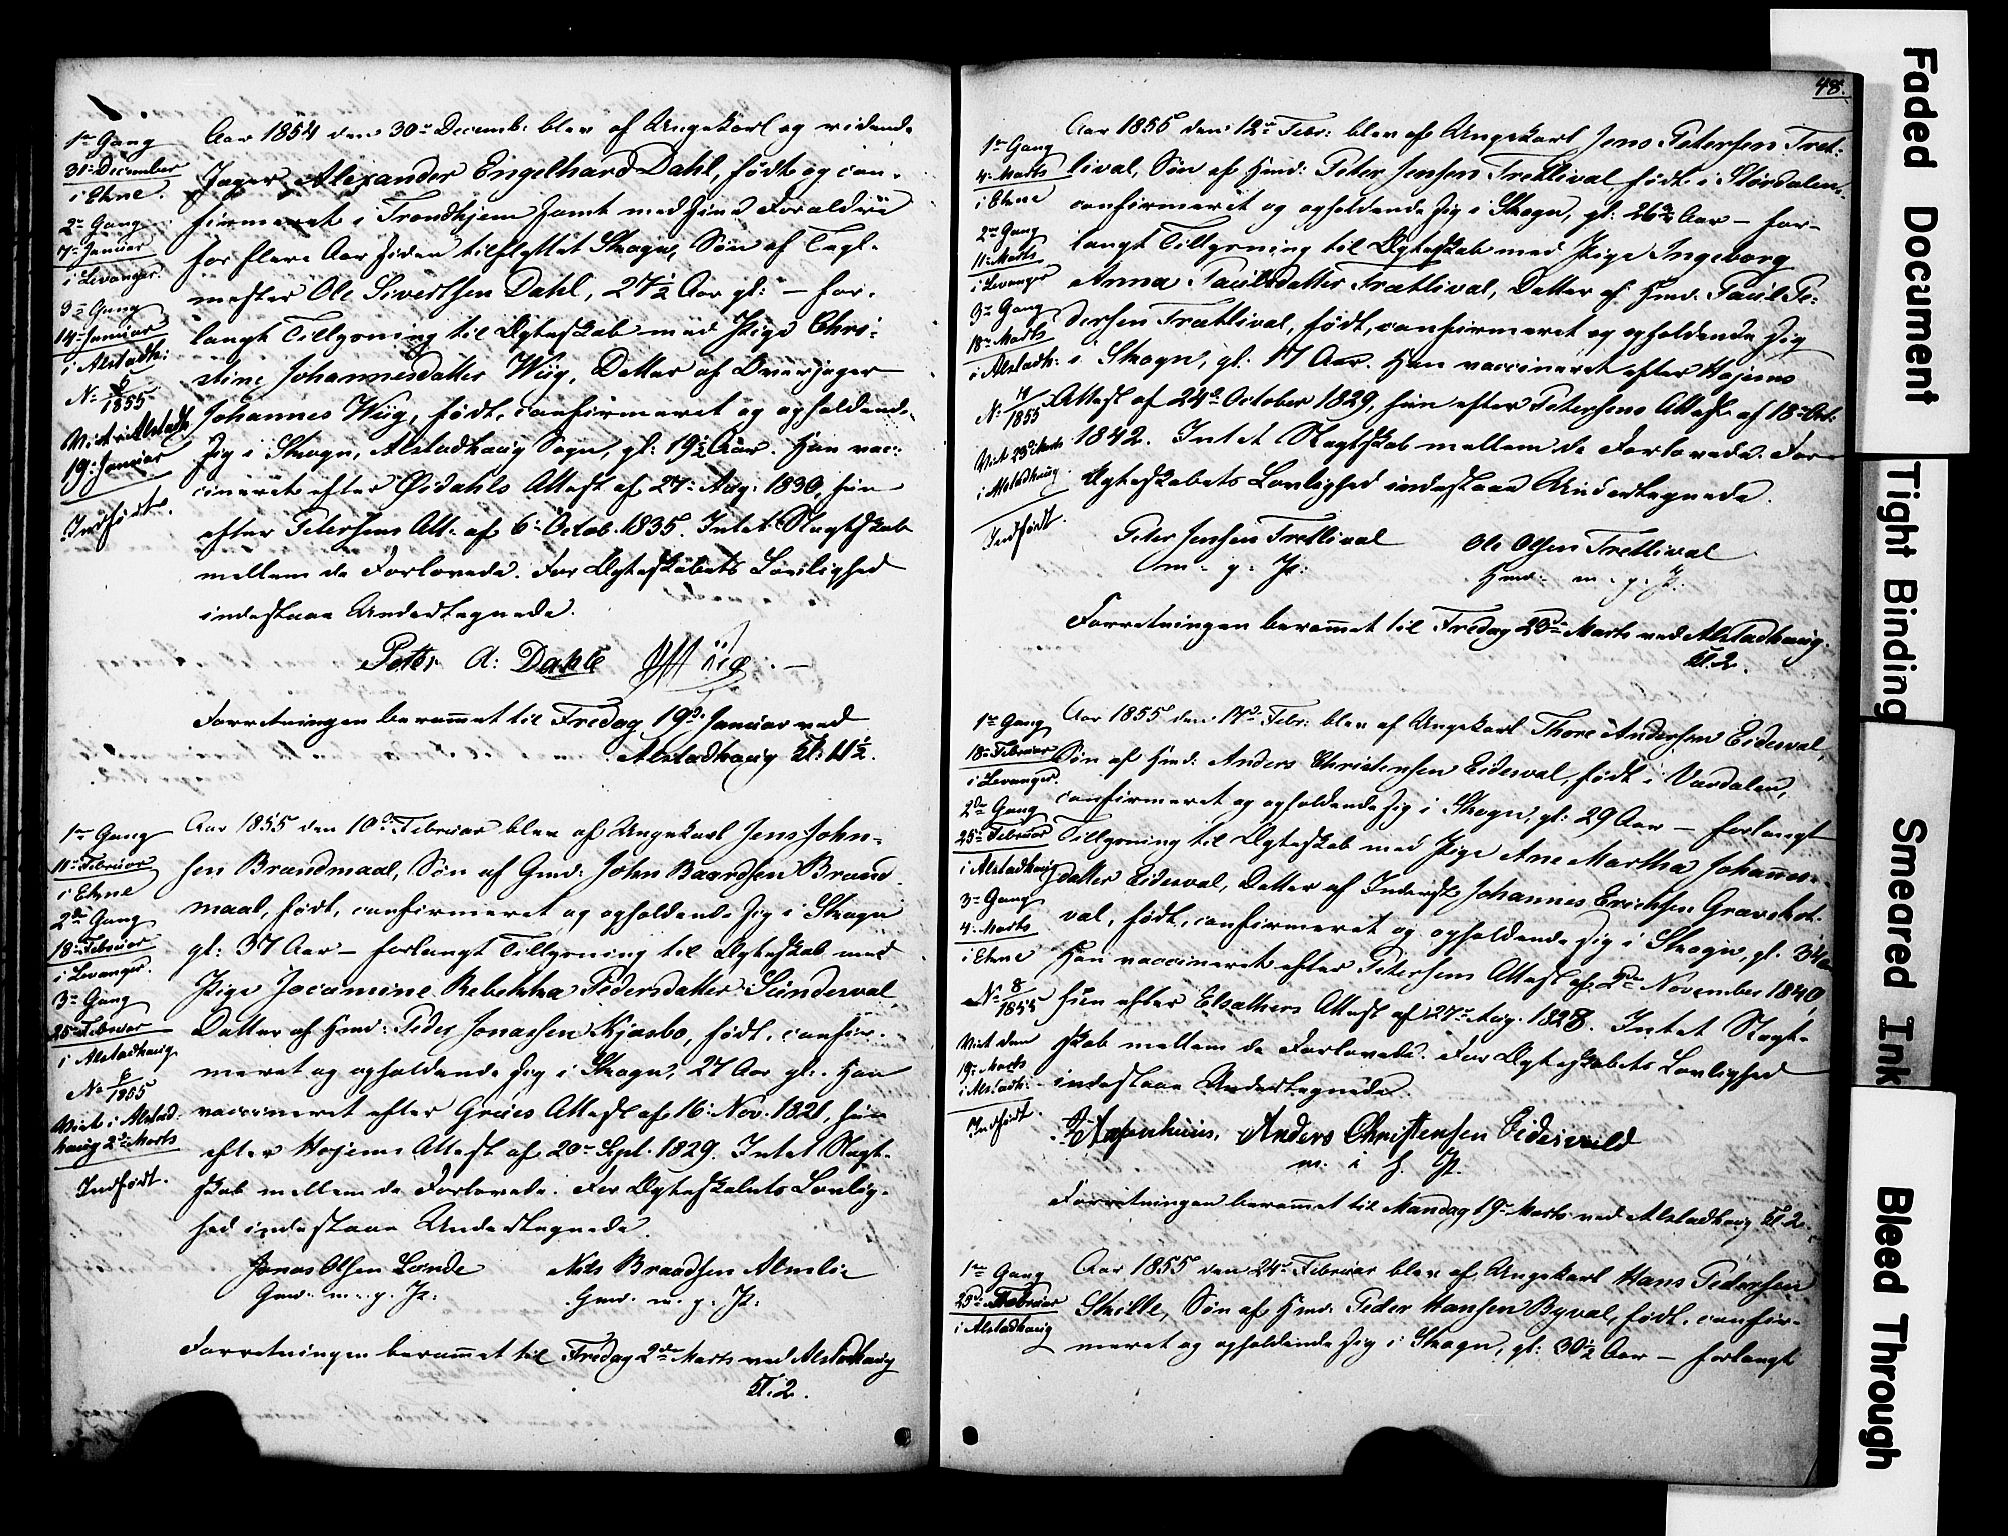 1ste Gang
31te December
i Ekne.
2den Gang
7de Januar
i Levanger.
3die Gang
14de Januar
i Alstadh:
No 6/1855
Viet i Alstadh.
19: Januar
Indført.
Aar 1854 den 30te Decemb: blev af Ungekarl og ridende
Jæger Alexander Engelhard Dahl, født og con-
firmeret i Trondhjem samt med sine Forældre
for flere Aar siden tilflyttet Skogn, Søn af Tegl-
mester Ole Sivertsen Dahl, 27½ Aar gl: – for-
langt Tillysning til Ægteskab med Pige Chri-
stine Johannesdatter Wiig, Datter af Overjæger
Johannes Wiig, født, confirmeret og opholdende
sig i Skogn, Alstadhaug Sogn, gl: 19½ Aar. Han vac-
cineret efter Øvdahls Attest af 27: Aug: 1830, hun
efter Petersens Att: af 6: Octob. 1835. Intet Slægtskab
mellem de Forlovede. For Ægteskabets Lovlighed
indestaae Undertegnede.
Petter A: Dahle
Forretningen berammet til Fredag 19de Januar ved
Alstadhaug Kl: 11½.
1ste Gang
11te Februar
i Ekne
2den Gang
18de Februar
i Levanger.
3die Gang
25de Februar
i Alstadhaug
No 6/1855
Viet i Alstad-
haug 2den Marts
Indført.
Aar 1855 den 10de Februar blev af Ungekarl Jens John-
sen Brandmaal, Søn af Gmd: John Baardsen Brand-
maal, født, confirmeret og opholdende sig i Skogn
gl: 37 Aar – forlangt Tillysning til Ægteskab med
Pige Jacomine Rebekka Pedersdatter Sundesval
Datter af Hmd: Peder Jonassen Kjasbo, født, confir-
meret og opholdende sig i Skogn, 27 Aar gl. Han
vaccineret efter Grøns Attest af 16: Nov. 1821, hun
efter Højems Attest af 20de Sept. 1829. Intet Slægt-
skab mellem de Forlovede. For Ægteskabets Lovlig-
hed indestaae Undertegnede.
Jonas Olsen Lunde
Gmd. m. p. P:
Nils Braadsen Almlie
Gmd. m. p. P:
Forretningen berammet til Fredag 2den Marts ved Alstadhaug
Kl. 2.
48.
1ste Gang
4: Marts
i Ekne
2den Gang
11te Marts
i Levanger
3die Gang
18de Marts
i Alstadh:
No 7/1855
Viet 23de Marts
i Alstadhaug.
Indført.
Aar 1855 den 12te Febr: blev af Ungekarl Jens Petersen Tret-
lival, Søn af Hmd: Peter Jensen Tretlival, født i Størdalen,
confirmeret og opholdende sig i Skogn, gl: 26¾ Aar – for-
langt Tillysning til Ægteskab med Pige Ingeborg
Anna Paulsdatter Trætlival, Datter af Hmd: Paul Pe-
dersen Trætlival, født, confirmeret og opholdende sig
i Skogn, gl. 17 Aar. Han vaccineret efter Højems
Attest af 24de October 1829, hun efter Petersens Attest af 18de Oct.
1842. Intet Slægtskab mellem de Forlovede. For
Ægteskabets Lovlighed indestaae Undertegnede.
Peter Jensen Tretlival
m. p. P:
Ole Olsen Tretlival
Hmd: m. p. P:
Forretningen berammet til Fredag 23de Marts ved Alstadhaug.
Kl. 2.
1ste Gang
18de Februar
i Levanger.
2den Gang
25de Februar
i Alstadhaug
3die Gang
4: Marts
i Ekne
No 8/1855
Viet den
19: Marts
i Alstadh:
Indført.
Aar 1855 den 17de Febr: blev af Ungekarl Thore Andersen Eidesval,
Søn af Hmd: Anders Christensen Eidesval, født i Værdalen,
confirmeret og opholdende sig i Skogn, gl: 29 Aar – forlangt
Tillysning til Ægteskab med Pige Ane Martha Johannes-
datter Eidesval, Datter af Inderst Johannes Erichsen Gravskot-
val, født, confirmeret og opholdende sig i Skogn, gl. 34
Han vaccineret efter Petersens Attest af 2den November 1840,
hun efter Elsathers Attest af 27de Aug. 1828. Intet Slægt-
skab mellem de Forlovede. For Ægteskabets Lovlighed
indestaae Undertegnede.
Anders Christensen Eidesvald
m. i h. P.
Forretningen berammet til Mandag 19de Marts ved Alstadhaug Kl. 2.
1ste Gang
25de Februar
i Alstadhaug
Aar 1855 den 24de Februar blev af Ungekarl Hans Pedersen
Skille, Søn af Hmd: Peder Hansen Byval, født, confir-
meret og opholdende sig i Skogn, gl: 30½ Aar – forlangt
Faded Document
Tight Binding
Smeared Ink
Bleed Through